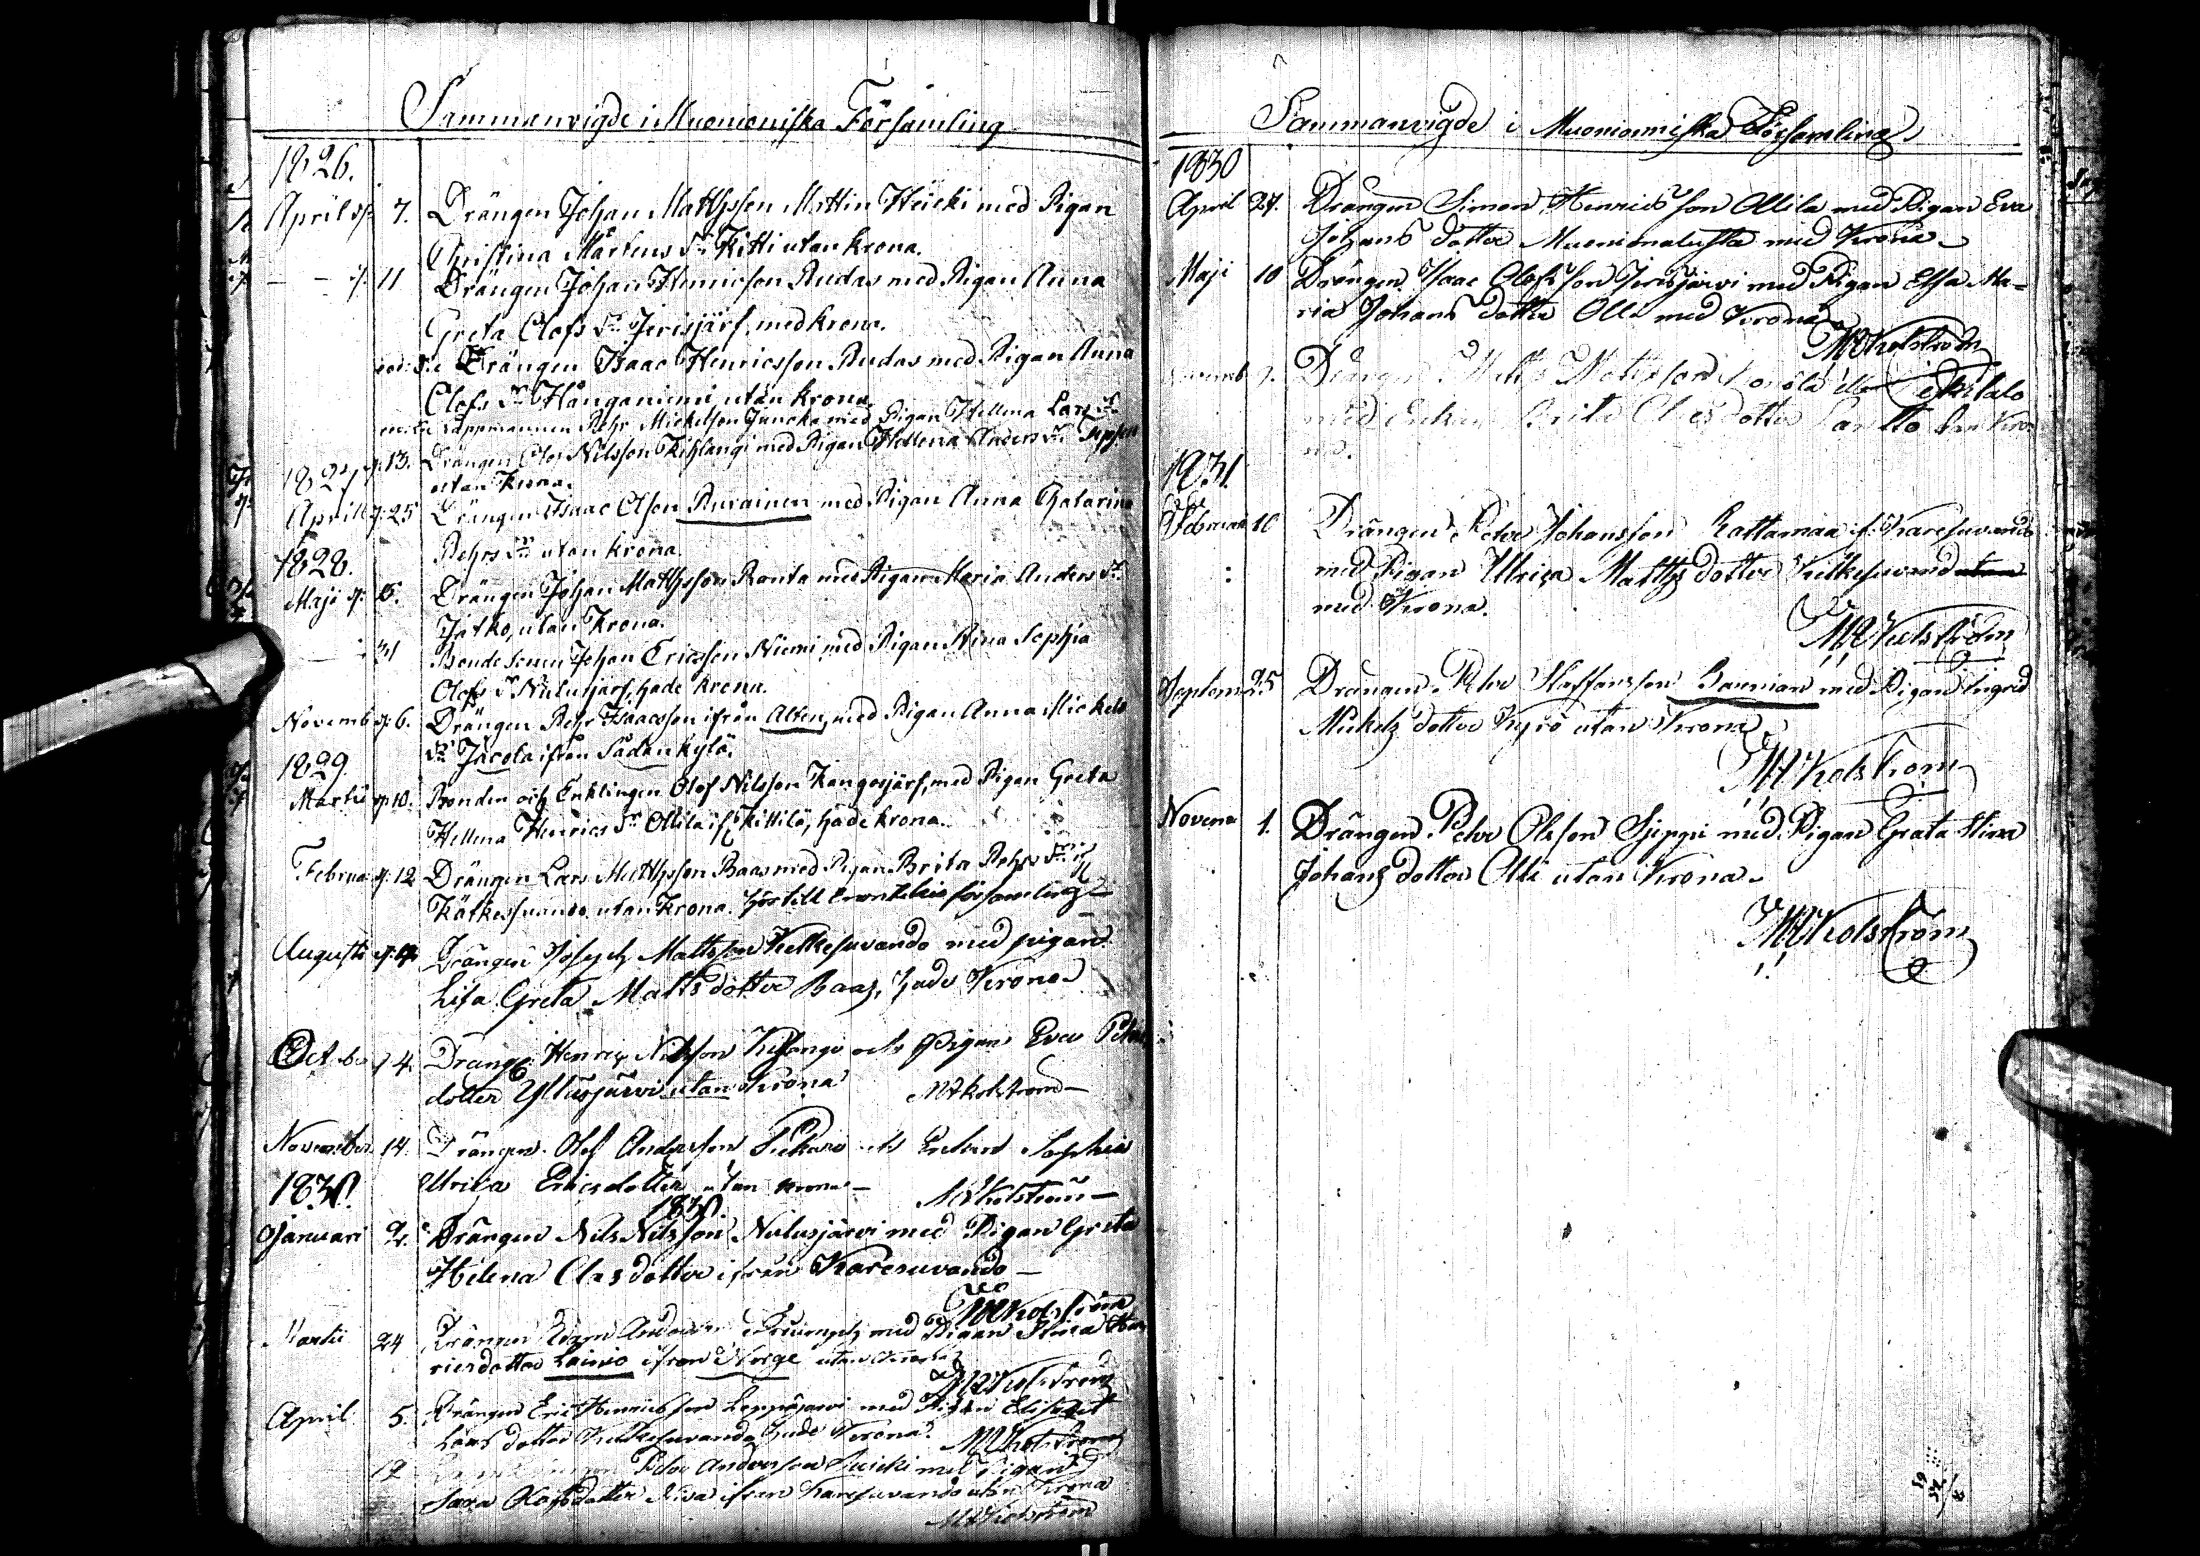 Sammanvigde i Muonioniska Församling
1826.
April d. 7. Drängen Johan Matthsson Mattin Heicki med Pigan
Christina Mårtens Dr Kitti utan krona.
— — d. 11 Drängen Johan Henricsson Rudas med Pigan Anna
Greta Olofs Dr Jerisjärf, med krona.
eod: die Drängen Isaac Henricsson Rudas med Pigan Anna
Olofs Dr Hånganiemi utan krona.
Lappmannen Pehr Mickelson Juncka med Pigan Hellena Lars Dr
1827 d. 13. Drängen Olof Nilsson Kihlangi med Pigan Hellena Anders Dr
utan krona.
April d. 25 Drängen Isaac Olson Rurainen med Pigan Anna Catarina
Pehrs Dr utan krona.
1828.
Maji d. 5. Drängen Johan Matthsson Ranta med Pigan Maria Anders Dr
Jatko, utan Krona.
— 31 Bonde Sonen Johan Ericsson Niemi med Pigan Stina Sophia
Olofs Dr Nulusjärf, hade krona.
Novemb d. 6. Drängen Pehr Isaacsson ifrån Alten, med Pigan Anna Mickels
Dr Jäcola ifrån Sådankylä.
1829.
Martii d. 10. Bonden och Enklingen Olof Nilsson Kangosjärf, med Pigan Greta
Hellena Henrics Dr Ollila if. Kittilä, hade krona.
Februa d. 12 Drängen Lars Matthsson Baas med Pigan Brita Pehrs Dr if
Kätkessuando, utan Krona. församling
Augusti d. Drängen Joseph Mattsson Kietkesuvando med pigan
Lisa Greta Matts dotter Baas, hade Krona
Octob d. 4. Dräng. Henric Nilsson Kihlangi och Pigan Eva Peters
dotter Yllüsjärvi utan Krona M A Kolström —
November 14. Drängen Olof Andersson och Enkan Sophia
Ulrica Ericsdotter utan krona — M A Kolström —
1830. 1830.
Januari 2. Drängen Nils Nilsson Nulusjärvi med Pigan Greta
Helena Olofsdotter ifrån Karesuvando —
M A Kolström
Martii 24 Drängen Anders med Pigan Stina Hen
ricsdotter Lainio ifrån Norge utan Krona
M A Kolström
April 5. Drängen Eric Henricsson Leppäjärvi med Pigan Elisabet
Lars dotter Kietkesuvando hade Krona. M A Kolström
12 Petter Andersson med Pigan
Sara Olofsdotter ifrån Karesuvando utan Krona
M A Kolström
Sammanvigde i Muonioniska Församling
1830
April 27. Drängen Simon Henricsson Ollila med Pigan Eva
Johans dotter Muonionalusta med Krona —
Maji 10 Drängen Isaac Olofsson Jerisjärvi med Pigan Elsa Ma=
ria Johans dotter Olli med Krona
M A Kolström
Drängen
med Enkan Brita dotter utan Kro
na.
1831.
Februari 10 Drängen Petter Johansson Rattamaa if. Karesuvando
med Pigan Ulrica Matths dotter Kietkesuvand utan
med Krona.
M A Kolström
Septem 25 Drängen Petter Staffansson med Pigan Sigrid
Mickels dotter Kyrö utan Krona
M A Kolström
Novem 1. Drängen Petter Olsson Sjeppi med Pigan Greta Stina
Johans dotter Olli utan Krona.
M A Kolström